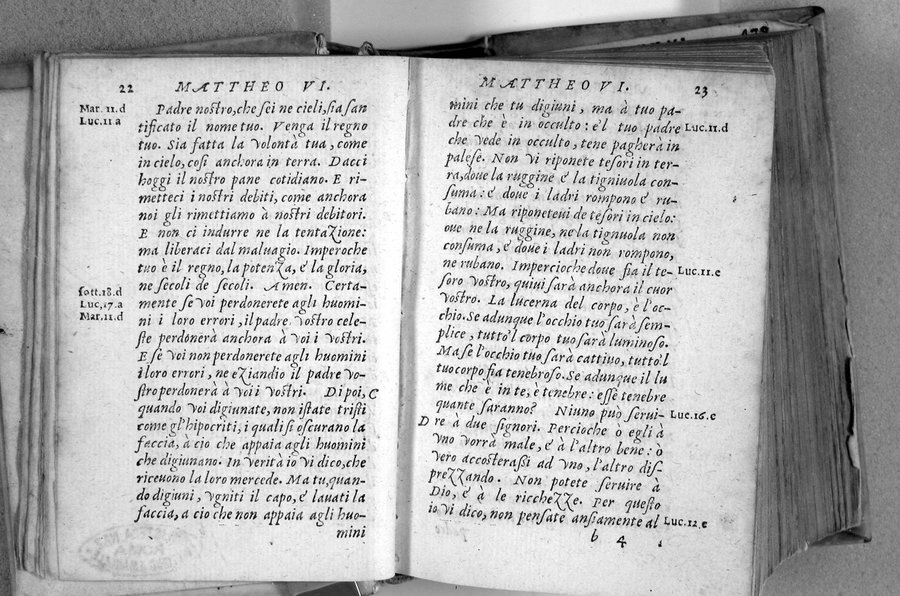 22 MATTHEO VI.
Mar. 11.d
Luc.11.a
Padre nostro, che sei ne cieli, sia san
tificato il nome tuo. Venga il regno
tuo. Sia fatta la volontà tua, come
in cielo, così anchora in terra. Dacci
hoggi il nostro pane cotidiano. E ri-
metteci i nostri debiti, come anchora
noi gli rimettiamo à nostri debitori.
E non ci indurre ne la tentazione:
ma liberaci dal maluagio. Imperoche
tuo è il regno, la potenza, é la gloria,
ne secoli de secoli. Amen. Certa-
sott.18.d
Luc,17.a
Mar.11.d
mente se voi perdonerete agli huomi-
ni i loro errori, il padre vostro cele-
ste perdonerà anchora à voi i vostri.
E sè voi non perdonerete agli huomini
i loro errori, ne eziandio il padre vo-
stro perdonerà à voi i vostri. Di poi, C
quando voi digiunate, non istate tristi
come gl'hipocriti, i quali si oscurano la
faccia, à cio che appaia agli huomini
che digiunano. In verità io vi dico, che
riceuono la loro mercede. Ma tu, quan-
do digiuni, vgniti il capo, é lauati la
faccia, a cio che non appaia agli huo-
mini
MATTHEO VI. 23
mini che tu digiuni, ma à tuo pa-
dre che è in occulto: é'l tuo padre Luc.11.d
che vede in occulto, tene pagherà in
palese. Non vi riponete tesori in ter-
ra, doue la ruggine é la tigniuola con-
suma: é doue i ladri rompono é ru-
bano: Ma riponeteui de tesori in cielo:
oue ne la ruggine, ne la tignuola non
consuma, é doue i ladri non rompono,
ne rubano. Impercioche doue fia il te- Luc.11.e
soro vostro, quiui sarà anchora il cuor
vostro. La lucerna del corpo, è l'oc-
chio. Se adunque l'occhio tuo sarà sem-
plice, tutto'l corpo tuo sarà luminoso.
Ma se l'occhio tuo sarà cattiuo, tutto'l
tuo corpo fia tenebroso. Se adunque il lu
me che è in te, è tenebre: esse tenebre
quante saranno? Niuno può serui- Luc.16.e
D re à due signori. Percioche ò egli à
vno vorrà male, é à l'altro bene: ò
vero accosterassi ad vno, l'altro dis-
prezzando. Non potete seruire à
Dio, é à le ricchezze. Per questo
io vi dico, non pensate ansiamente al Luc.12.e
b 4